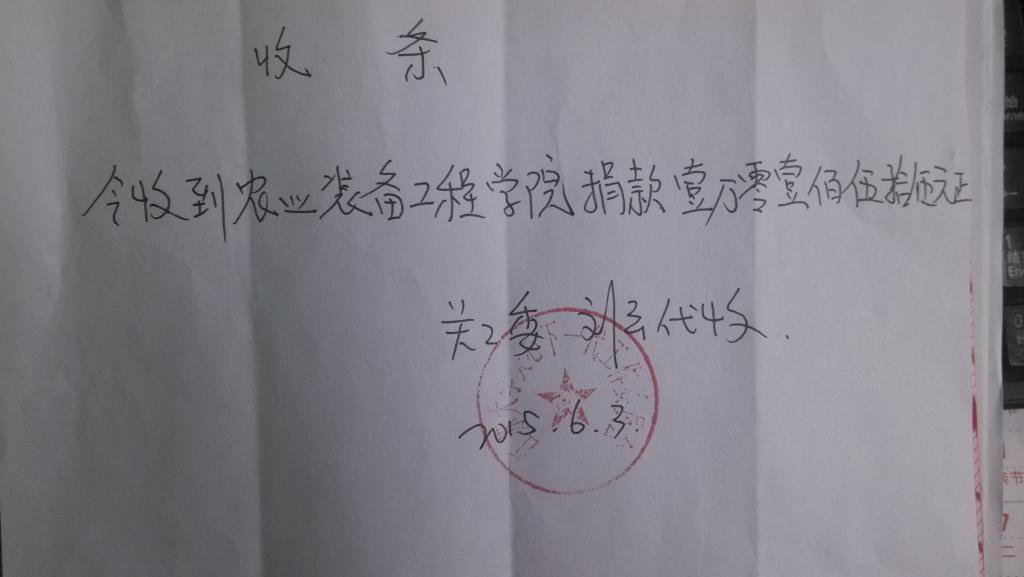 收 条
今收到农业装备工程学院捐款壹万零壹佰伍拾伍元正
关工委 刘云代收.
2015.6.3.